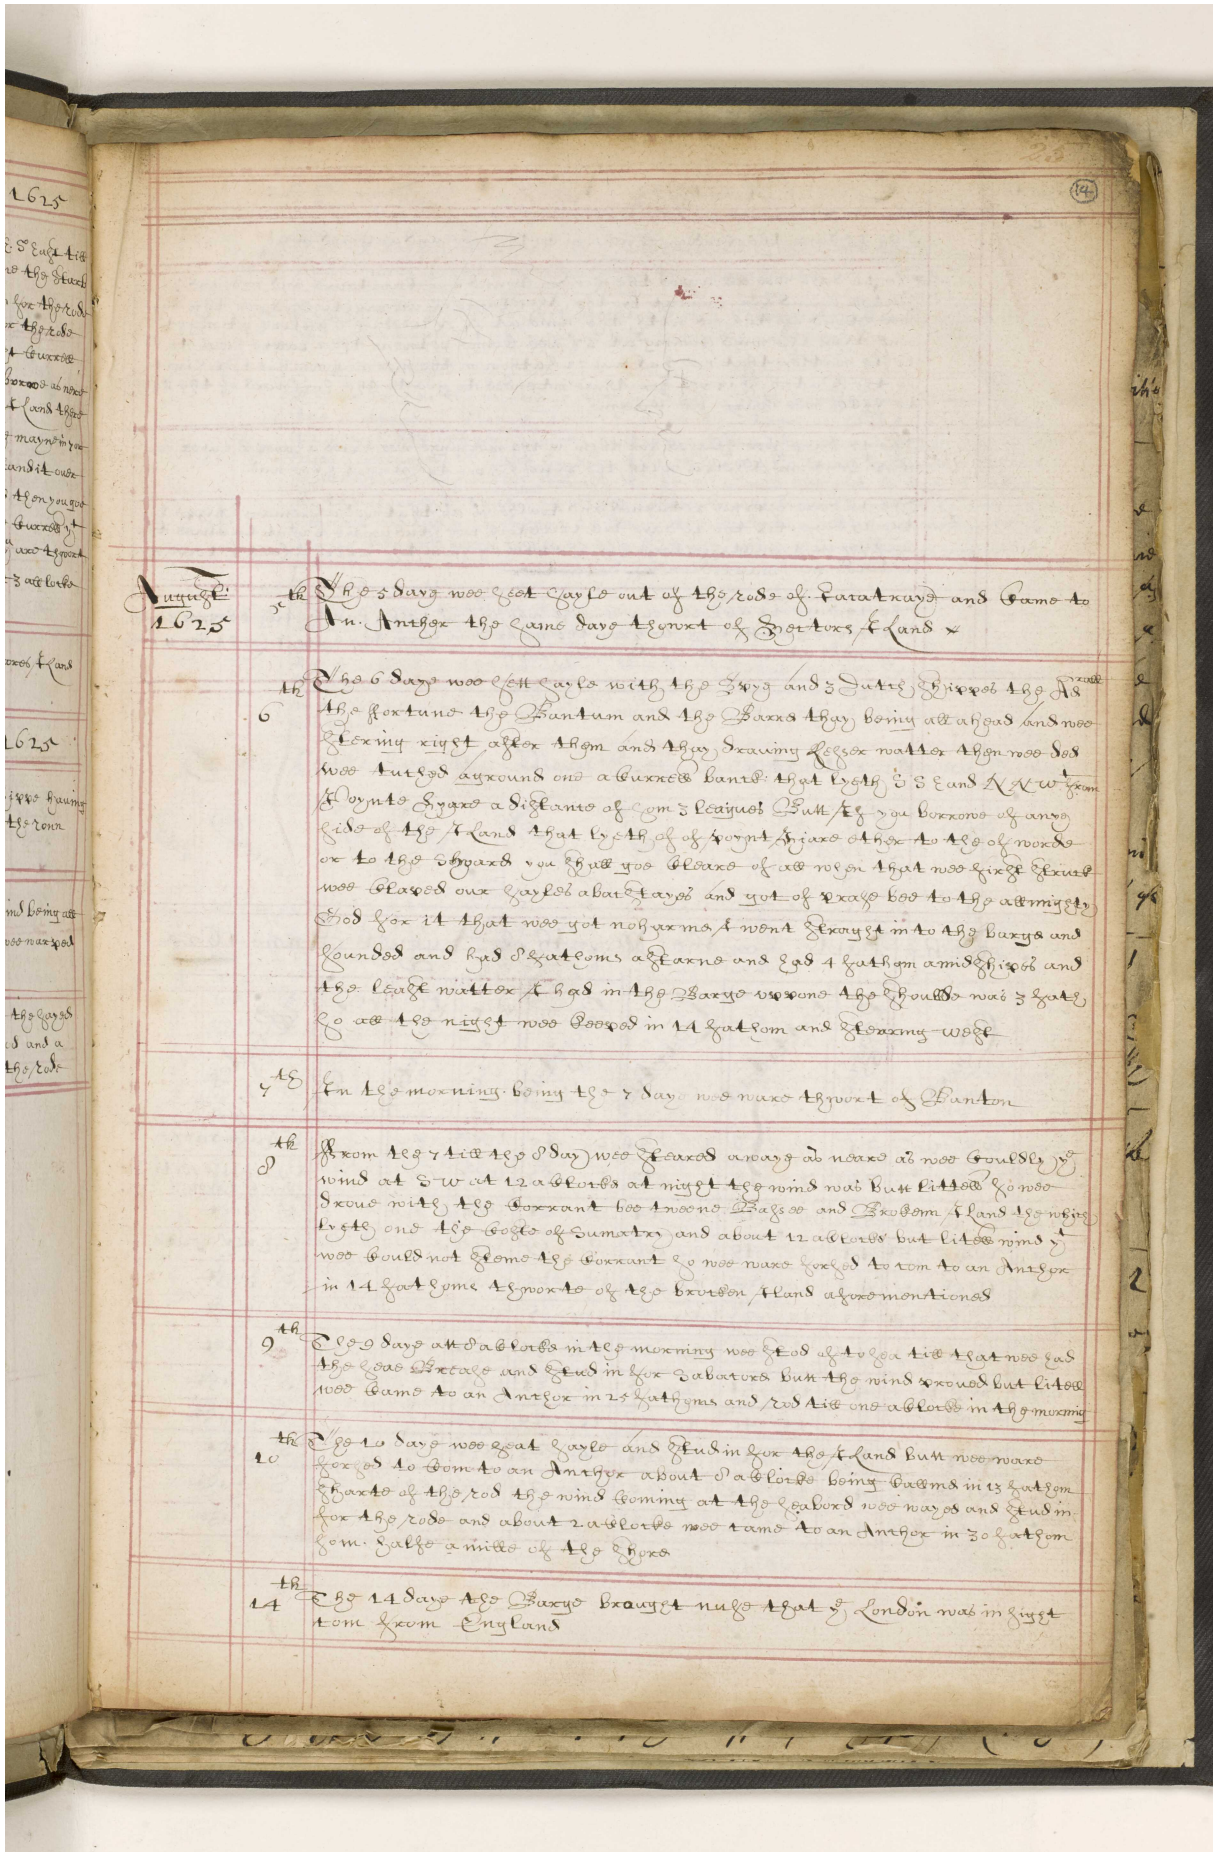 14
August
1625
5th The 5 daye wee seet sayle out of the rode of and came to
An. Ancher the same daye thwort of Hectors Iland
6th The 6 daye wee sett sayle with the Spye and 3 Dutch Shippes the
the Fortune the Bantum and the Barre thay being all ahead and wee
stering right after them and thay drawing lesser watter then wee ded
wee tuched aground one a banck that lyeth S S E and N N W from
Poynte a distance of som 3 leagues Butt If you borrowe of anye
side of the Iland that lyeth of of poynt ether to the of worde
or to the Shoard you shall goe cleare of all when that wee first struck
wee claped our sayles abackstayes and got of prase bee to the allmighty
God for it that wee got no harme I went straght in to the barge and
sounded and had 8 fathoms astarne and had 4 fathom amidshipes and
the least watter I had in the Barge uppone the shoulde was 3 fath
so all the night wee keeped in 14 fathom and stearring west
7th In the morning being the 7 day wee ware thwort of Banton
8th From the 7 till the 8 day wee steared awaye as neare as wee could ly ye
wind at S W at 12 a clocke at night the wind was butt littell so wee
drove with the corrant bee tweene Bassee and Brokenn Iland the which
lyeth one the coste of Sumatry and about 12 a clock but litell wind yt
wee could not steme the corrant so wee ware forsed to com to an Anchor
in 14 fathoms thworte of the brocken Iland aforementioned
9th The 9 daye att 8 a clocke in the morning wee stod of to sea till that wee had
the seae Brease and stud in for Sabacore butt the wind proved but litell
wee came to an Anchor in 25 fathoms and rod till one a clocke in the morning
10th The 10 daye wee seat sayle and stud in for the Iland butt wee ware
forsed to com to an Anchor about 8 a clocke being callmd in 13 fathom
sharte of the rod the wind coming at the seabord wee wayed and stud in
for the rode and about 2 a clocke wee came to an Anchor in 30 fathom
som halfe a mille of the shore
14th The 14 daye the Barge brought nuse that ye London was in sight
com from England